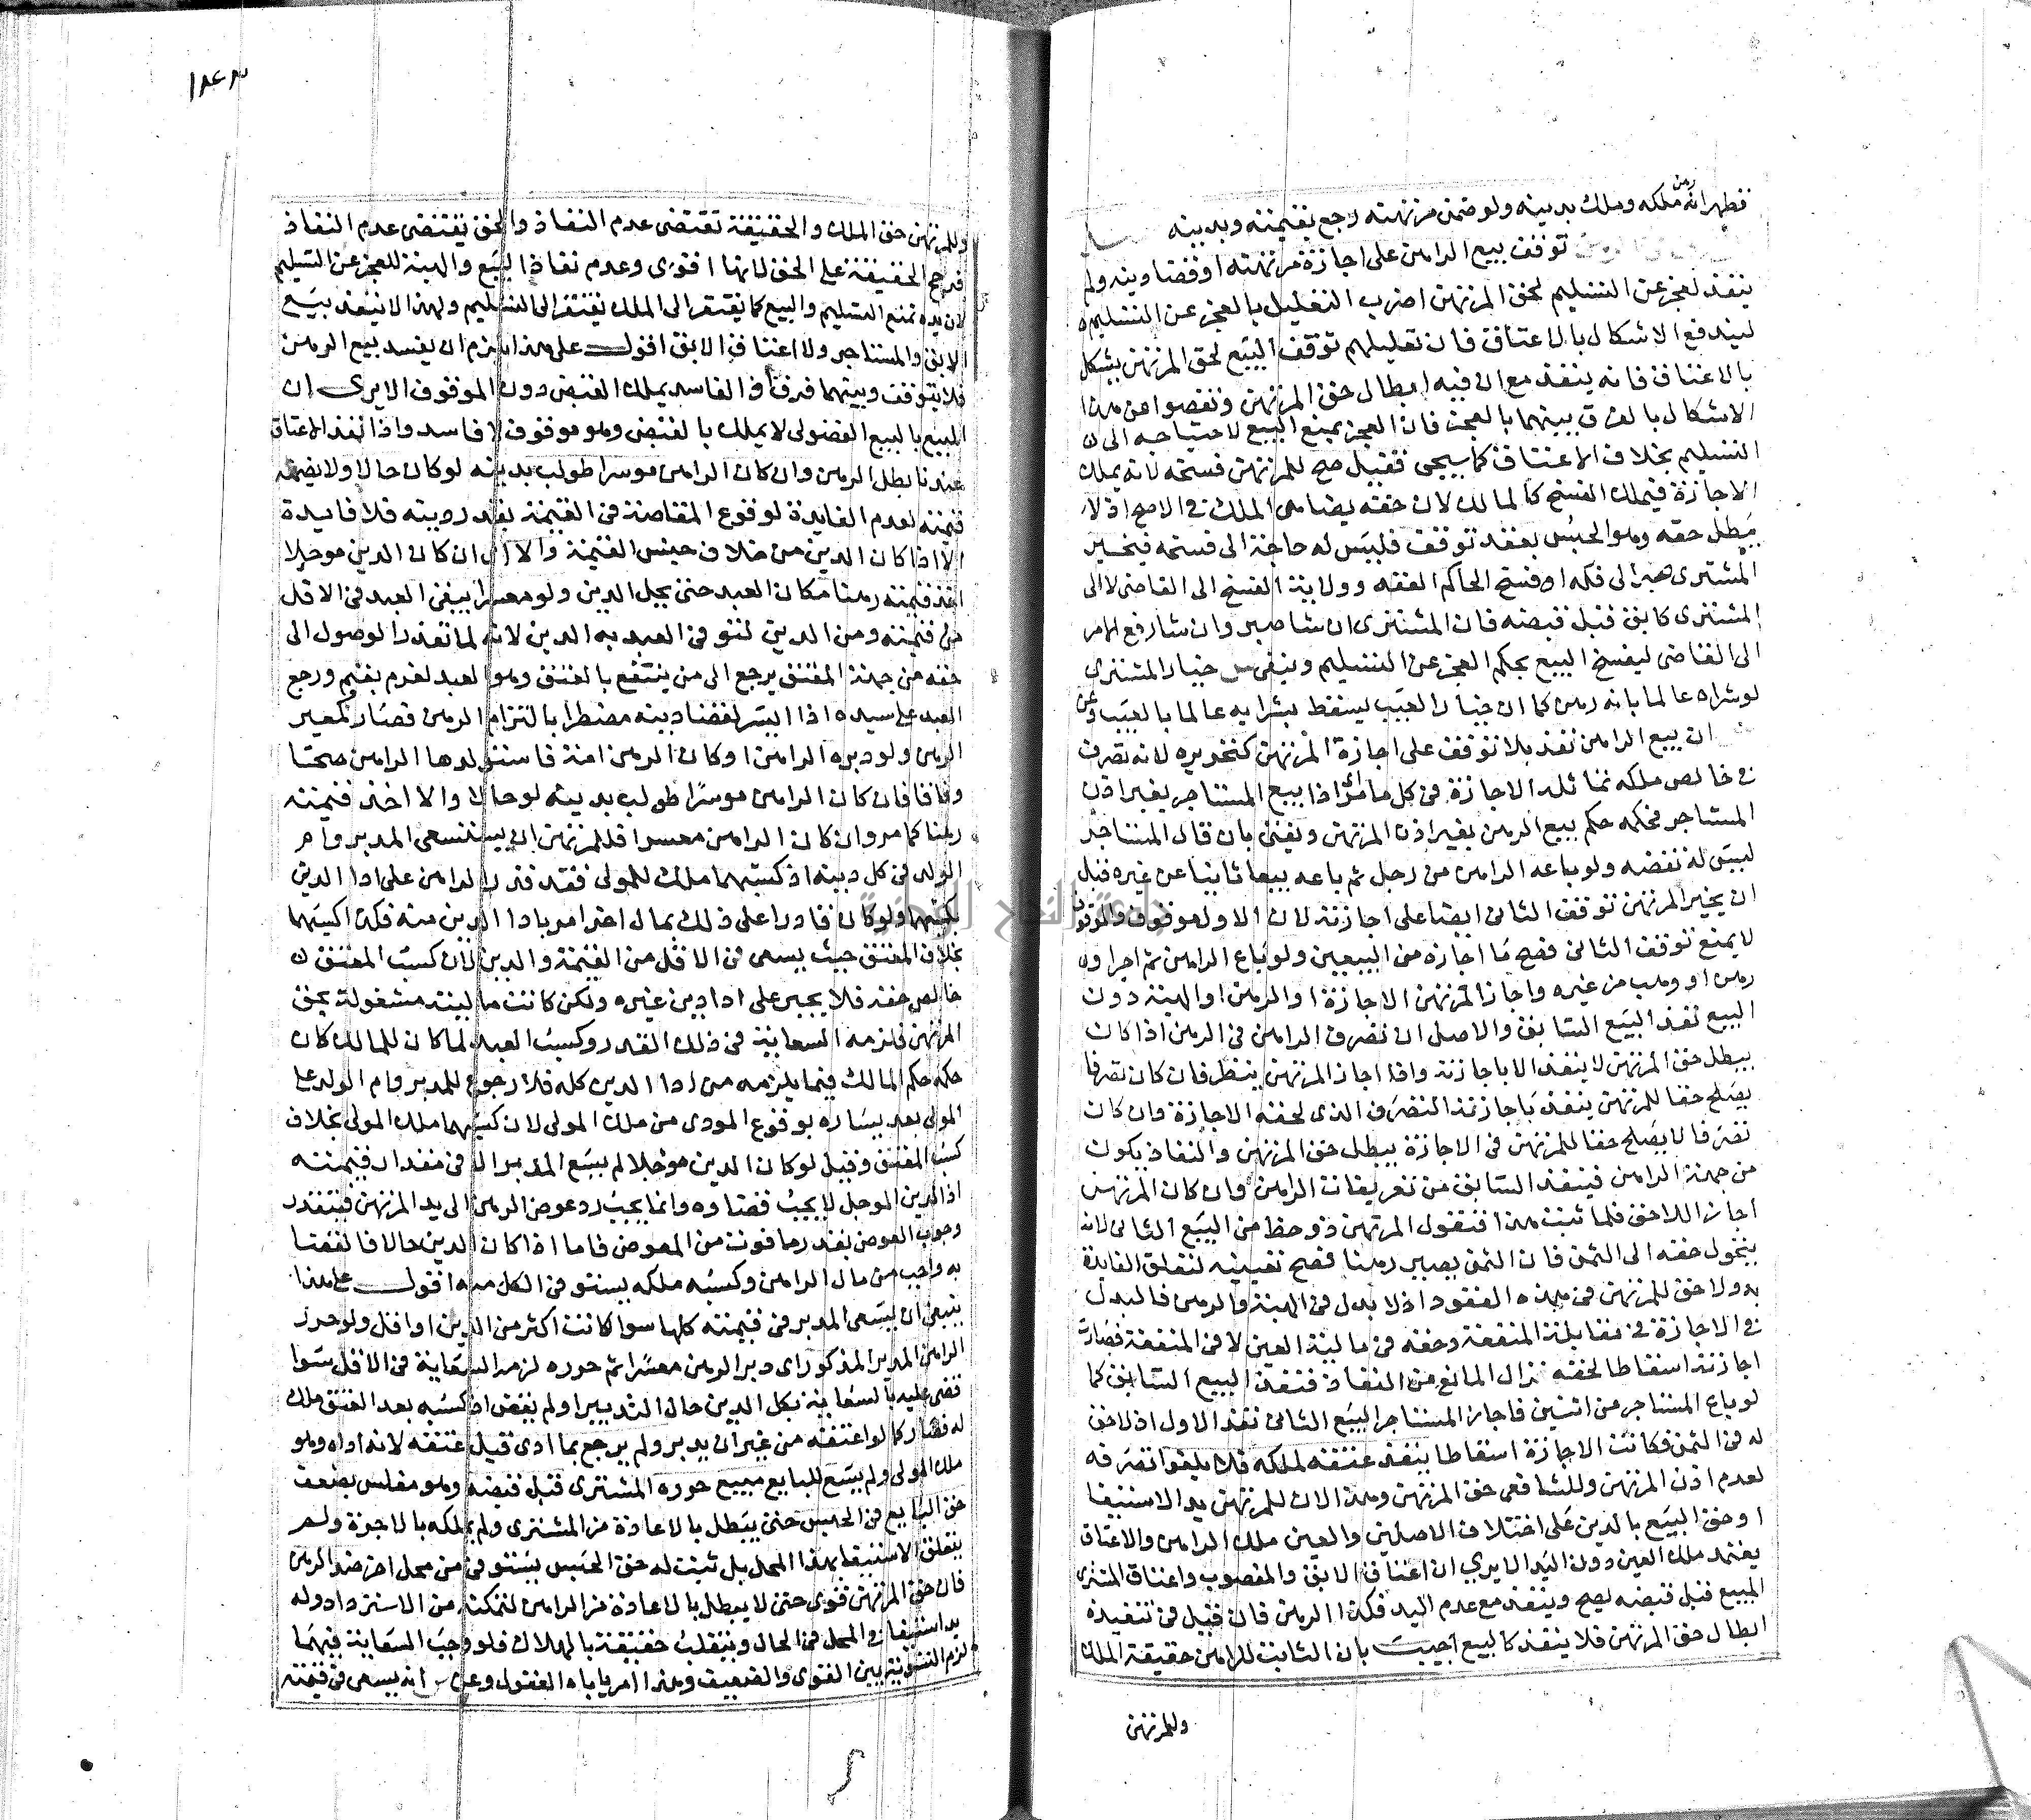 فظهر انه رهن ملكه وملك بدينه ولو ضمن مرتهنه رجع بقيمته وبدينه
توقف بيع الراهن على اجازة مرتهنه او قضا دينه ولم
ينفذ لعجز عن التسليم لحق المرتهن اضرب التعليل بالعجز عن التسليم
ليندفع الاشكال بالاعتاق فان تعليلهم توقف البيع لحق المرتهن يشكل
بالاعتاق فانه ينفذ مع ان فيه ابطال حق المرتهن وتفصوا عن هذا
الاشكال بالفرق بينهما بالعجز فان العجز يمنع البيع لاحتياجه الى
التسليم بخلاف الاعتاق كما سيجي فقيل صح للمرتهن فسخه لانه يملك
الاجازة فيملك الفسخ كالمالك لان حقه يضاهي الملك في الاصح اذ لا
يبطل حقه وهو الحبس بعقد توقف فليس له حاجة الى فسخه فيخير
المشترى صبر الى فكه او فسخ الحاكم العقد وولاية الفسخ الى القاضى لا الى
المشترى كابق قبل قبضه فان المشترى ان شا صبر وان شا رفع الامر
الى القاضى ليفسخ البيع بحكم العجز عن التسليم وينبغي خيار المشترى
لو شراه عالما بانه رهن كما ان خيار العيب يسقط بشرايه عالما بالعيب وعن
ان بيع الراهن نفذ بلا توقف على اجازة المرتهن كتحريره لانه تصرف
في خالص ملكه تماثله الاجازة في كل ما مر اى اذا بيع المستاجر بغير اذن
المستاجر فحكمه حكم بيع الرهن بغير اذن المرتهن ويفتى بان قال المستاجر
ليس له نقضه ولو باعه الراهن من رجل ثم باعه بيعا ثانيا من غيره قبل
ان يخير المرتهن توقف الثانى ايضا على اجازته لان الاول موقوف والموقوف
لا يمنع توقف الثانى فصح ما اجازه من البيعين ولو باع الراهن ثم اجر او
رهن او وهب من غيره واجاز المرتهن الاجازة او الرهن او الهبة دون
البيع نفذ البيع السابق والاصل ان تصرف الراهن في الرهن اذا كان
يبطل حق المرتهن لا ينفذ الا باجازته واذا اجاز المرتهن ينظر فان كان تصرفا
يصلح حقا للمرتهن ينفذ باجازته التصرف الذى لحقته الاجازة وان كان
تصرفا لا يصلح حقا للمرتهن في الاجازة يبطل حق المرتهن والنفاذ يكون
من جهة الراهن فينفذ السابق من تصريفات الراهن وان كان المرتهن
اجاز اللاحق فلما ثبت هذا فنقول المرتهن ذو حظ من البيع الثانى لانه
يتحول حقه الى الثمن فان الثمن يصير رهنا فصح تعيينه لتعلق الفايدة
به ولا حق للمرتهن في هذه العقود اذ لا بدل في الهبة والرهن فالبدل
في الاجازة في مقابلة المنفعة وحقه في مالية العين لا في المنفعة فصارت
اجازته اسقاطا لحقه فزال المانع من النفاذ فنفذ البيع السابق كما
لو باع المستاجر من اثنين فاجاز المستاجر البيع الثانى نفذ الاول اذ لا حق
له في الثمن فكانت الاجازة اسقاطا ينفذ عتقه لملكه فلا يلغوا تصرفه
لعدم اذن المرتهن وللشافعى حق المرتهن وهذا لان للمرتهن يد الاستيفا
او حق البيع بالدين على اختلاف الاصلين والعين ملك الراهن والاعتاق
يعتمد ملك العين دون اليد الا يري ان اعتاق الابق والمغصوب واعتاق المشترى
المبيع قبل قبضه يصح وينفذ مع عدم اليد فكذا الرهن فان قيل في تنفيذه
ابطال حق المرتهن فلا ينفذ كالبيع اجيب بان الثابت للراهن حقيقة الملك
وللمرتهن
١٨٤٣
وللمرتهن حق الملك والحقيقة تقتضى عدم النفاذ والحق يقتضى عدم النفاذ
فرجح الحقيقة على الحق لانها اقوى وعدم نفاذ البيع والهبة للعجز عن التسليم
لان يده تمنع التسليم والبيع كما يفتقر الى الملك يفتقر الى التسليم ولهذا لا ينفذ بيع
الابق والمستاجر ولا اعتاق الابق اقول على هذا يلزم ان يفسد بيع الرهن
فلا يتوقف وبينهما فرق اذ الفاسد يملك القبض دون الموقوف الا يرى ان
المبيع بالبيع الفضولى لا يملك بالقبض وهو موقوف لا فاسد واذا نفذ الاعتاق
عندنا بطل الرهن وان كان الراهن موسرا طولب بدينه لو كان حالا ولا يضمنه
قيمته لعدم الفايدة لوقوع المقاصة في القيمة بقدر دينه فلا فايدة
الا اذا كان الدين من خلاف جنس القيمة والا اى ان كان الدين موجلا
اخذ قيمته رهنا مكان العبد حتى يحل الدين ولو معسرا يبقى العبد في الاقل
من قيمته ومن الدين لتوفى العبد به الدين لانه لما تعذر الوصول الى
حقه من جهة المعتق يرجع الى من ينتفع بالعتق وهو العبد لغرم بغنم ورجع
العبد على سيده اذا ايسر لقضا دينه مضطرا بالتزام الرهن فصار كمعير
الرهن ولو دبره الراهن او كان الرهن امة فاستولدها الراهن صحتا
وفاقا فان كان الراهن موسرا طولب بدينه لو حالا والا اخذ قيمته
رهنا كما مر وان كان الراهن معسرا فللمرتهن ان يستسعى المدبر وام
الولد في كل دينه اذ كسبهما ملك للمولى فقد قدر الراهن على ادا الدين
بكسبهما ولو كان قادرا على ذلك بمال اخر امر بادا الدين منه فكذا كسبهما
بخلاف المعتق حيث يسعى في الاقل من القيمة والدين لان كسب المعتق
خالص حقه فلا يجبر على ادا دين غيره ولكن كانت ماليته مشغولة بحق
المرتهن فلزمه السعاية في ذلك القدر وكسب العبد لما كان للمالك كان
حكمه حكم المالك فيما يلزمه من ادا الدين كله فلا رجوع للمدبر وام الولد على
المولى بعد يساره بوقوع المودى من ملك المولى لان كسبهما ملك المولى بخلاف
كسب المعتق وقيل لو كان الدين موجلا لم يسع المدبر الا في مقدار قيمته
اذ الدين الموجل لا يجب قضاوه وانما يجب رد عوض الرهن الى يد المرتهن فيتقدر
وجوب العوض بقدر ما فوت من المعوض فاما اذا كان الدين حالا فالقضا
به واجب من مال الراهن وكسبه ملكه يستوفى الكل منه اقول على هذا
ينبغي ان يسعى المدبر في قيمته كلها سوا كانت اكثر من الدين او اقل ولو حرر
الراهن المدبر المذكور اى دبر الرهن معسرا ثم حرره لزمه السعاية في الاقل سوا
قضى عليه بالسعاية بكل الدين حال التدبير او لم يقض اذ كسبه بعد العتق ملك
له فصار كما لو اعتقه من غير ان يدبر ولم يرجع بما ادى قبل عتقه لانه اداه وهو
ملك المولى ولم يسع للبايع مبيع حرره المشترى قبل قبضه وهو مفلس بضعف
حق البايع في الحبس حتى يبطل بالاعادة من المشترى ولم يملكه بالاجرة ولم
يتعلق الاستيفا بهذا المحل بل ثبت له حق الحبس يستوفى من محل اخر ضد الرهن
فان حق المرتهن قوى حتى لا يبطل بالاعادة من الراهن لتمكنه من الاسترداد وله
يد استيفا في المحل في الحال وينقلب حقيقة بالهلاك فلو وجب السعاية فيهما
لزم التسوية بين القوى والضعيف وهذا امر ياباه العقول وعن انه يسعى في قيمته